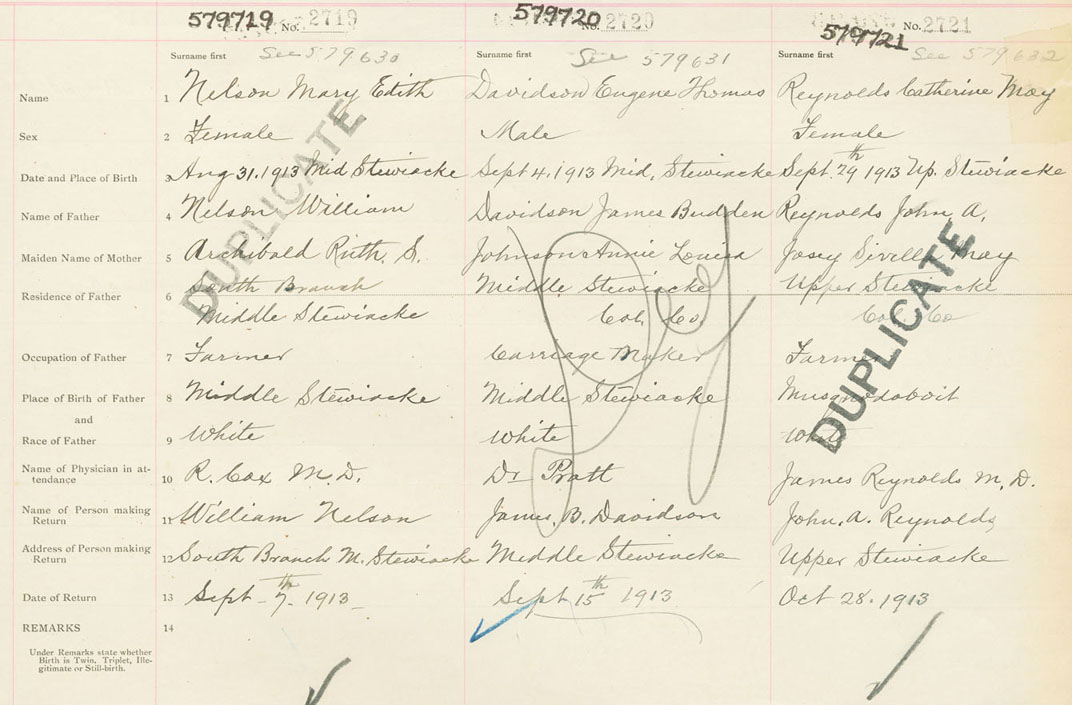 579719 No. 2719
579720 No. 2720
579721 No. 2721
Surname first See 579630
Surname first See 579631
Surname first See 579632
Name 1 Nelson Mary Edith Davidson Eugene Thomas Reynolds Catherine May
Sex 2 Female Male Female
Date and Place of Birth 3 Aug 31. 1913 Mid Stewiacke Sept 4. 1913 Mid. Stewiacke Sept. 29th 1913 Up. Stewiacke
Name of Father 4 Nelson William Davidson James Budden Reynolds John A.
Maiden Name of Mother 5 Archibald Ruth. S. Johnson Annie Louisa May
Residence of Father 6 South Branch Middle Stewiacke Upper Stewiacke
Middle Stewiacke Col. Co. Col. Co
Occupation of Father 7 Farmer Carriage Maker Farmer
Place of Birth of Father 8 Middle Stewiacke Middle Stewiacke Musquodoboit
and
Race of Father 9 White White White
Name of Physician in at-
tendance 10 R. Cox M.D. Dr Pratt James Reynolds M.D.
Name of Person making
Return 11 William Nelson James. B. Davidson John. A. Reynolds
Address of Person making
Return 12 South Branch M. Stewiacke Middle Stewiacke Upper Stewiacke
Date of Return 13 Sept 7th 1913 Sept 15th 1913 Oct 28. 1913
REMARKS 14
Under Remarks state whether
Birth is Twin, Triplet, Ille-
gitimate or Still-birth.
DUPLICATE
DUPLICATE